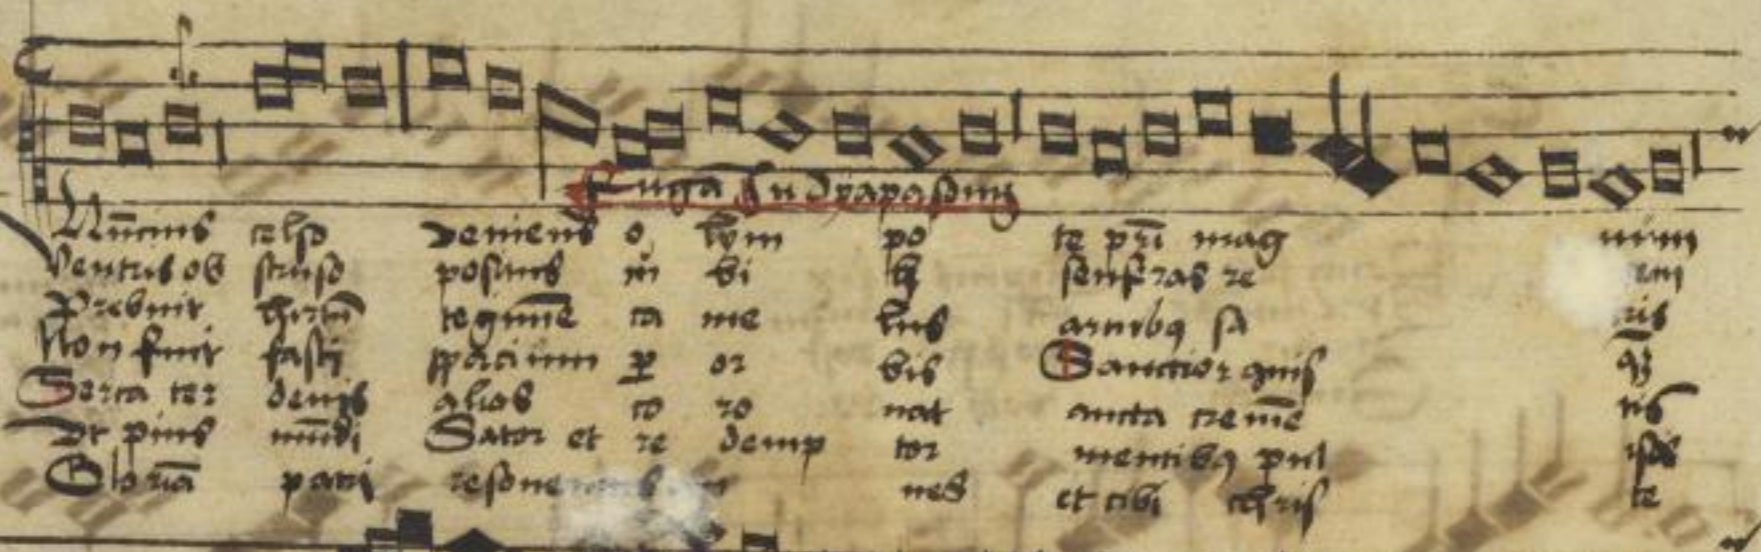 Fuga In dyapason
Nu͞cius celso veniens o lym po te pr͞i mag num
Ventris obstruso positus cu bi li senseras re gem
Prebuit hirtu͞ tegime͞ ca me lus artubꝫ sa cris
Non fuit fasti spacium ꝑ or bis Sanctior quis
Serta ter denis alios co ro nat aucta creme͞ tis
Ut pius mu͞di Sator et re demp tor mentibꝫ pul sis
Gloria͞ patri resonemus nes et tibi chris te